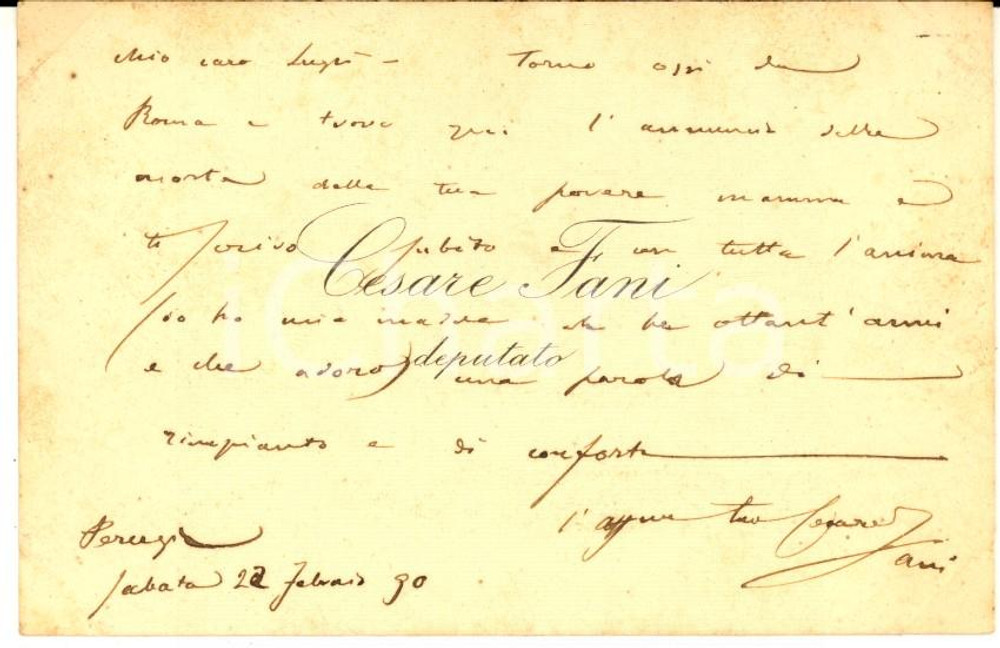 Mio caro Luigi – Torno oggi da
Roma e trovo qui l'annunzio della
morte della tua povera mamma e
ti scrivo subito e con tutta l'anima
Cesare Fani
(io ho una madre che ha ottant'anni
deputato
e che adoro) una parola di
rimpianto e di conforto
l'aff.mo tuo Cesare
Fani
Perugia
sabato 22 febraio 90
iCharta